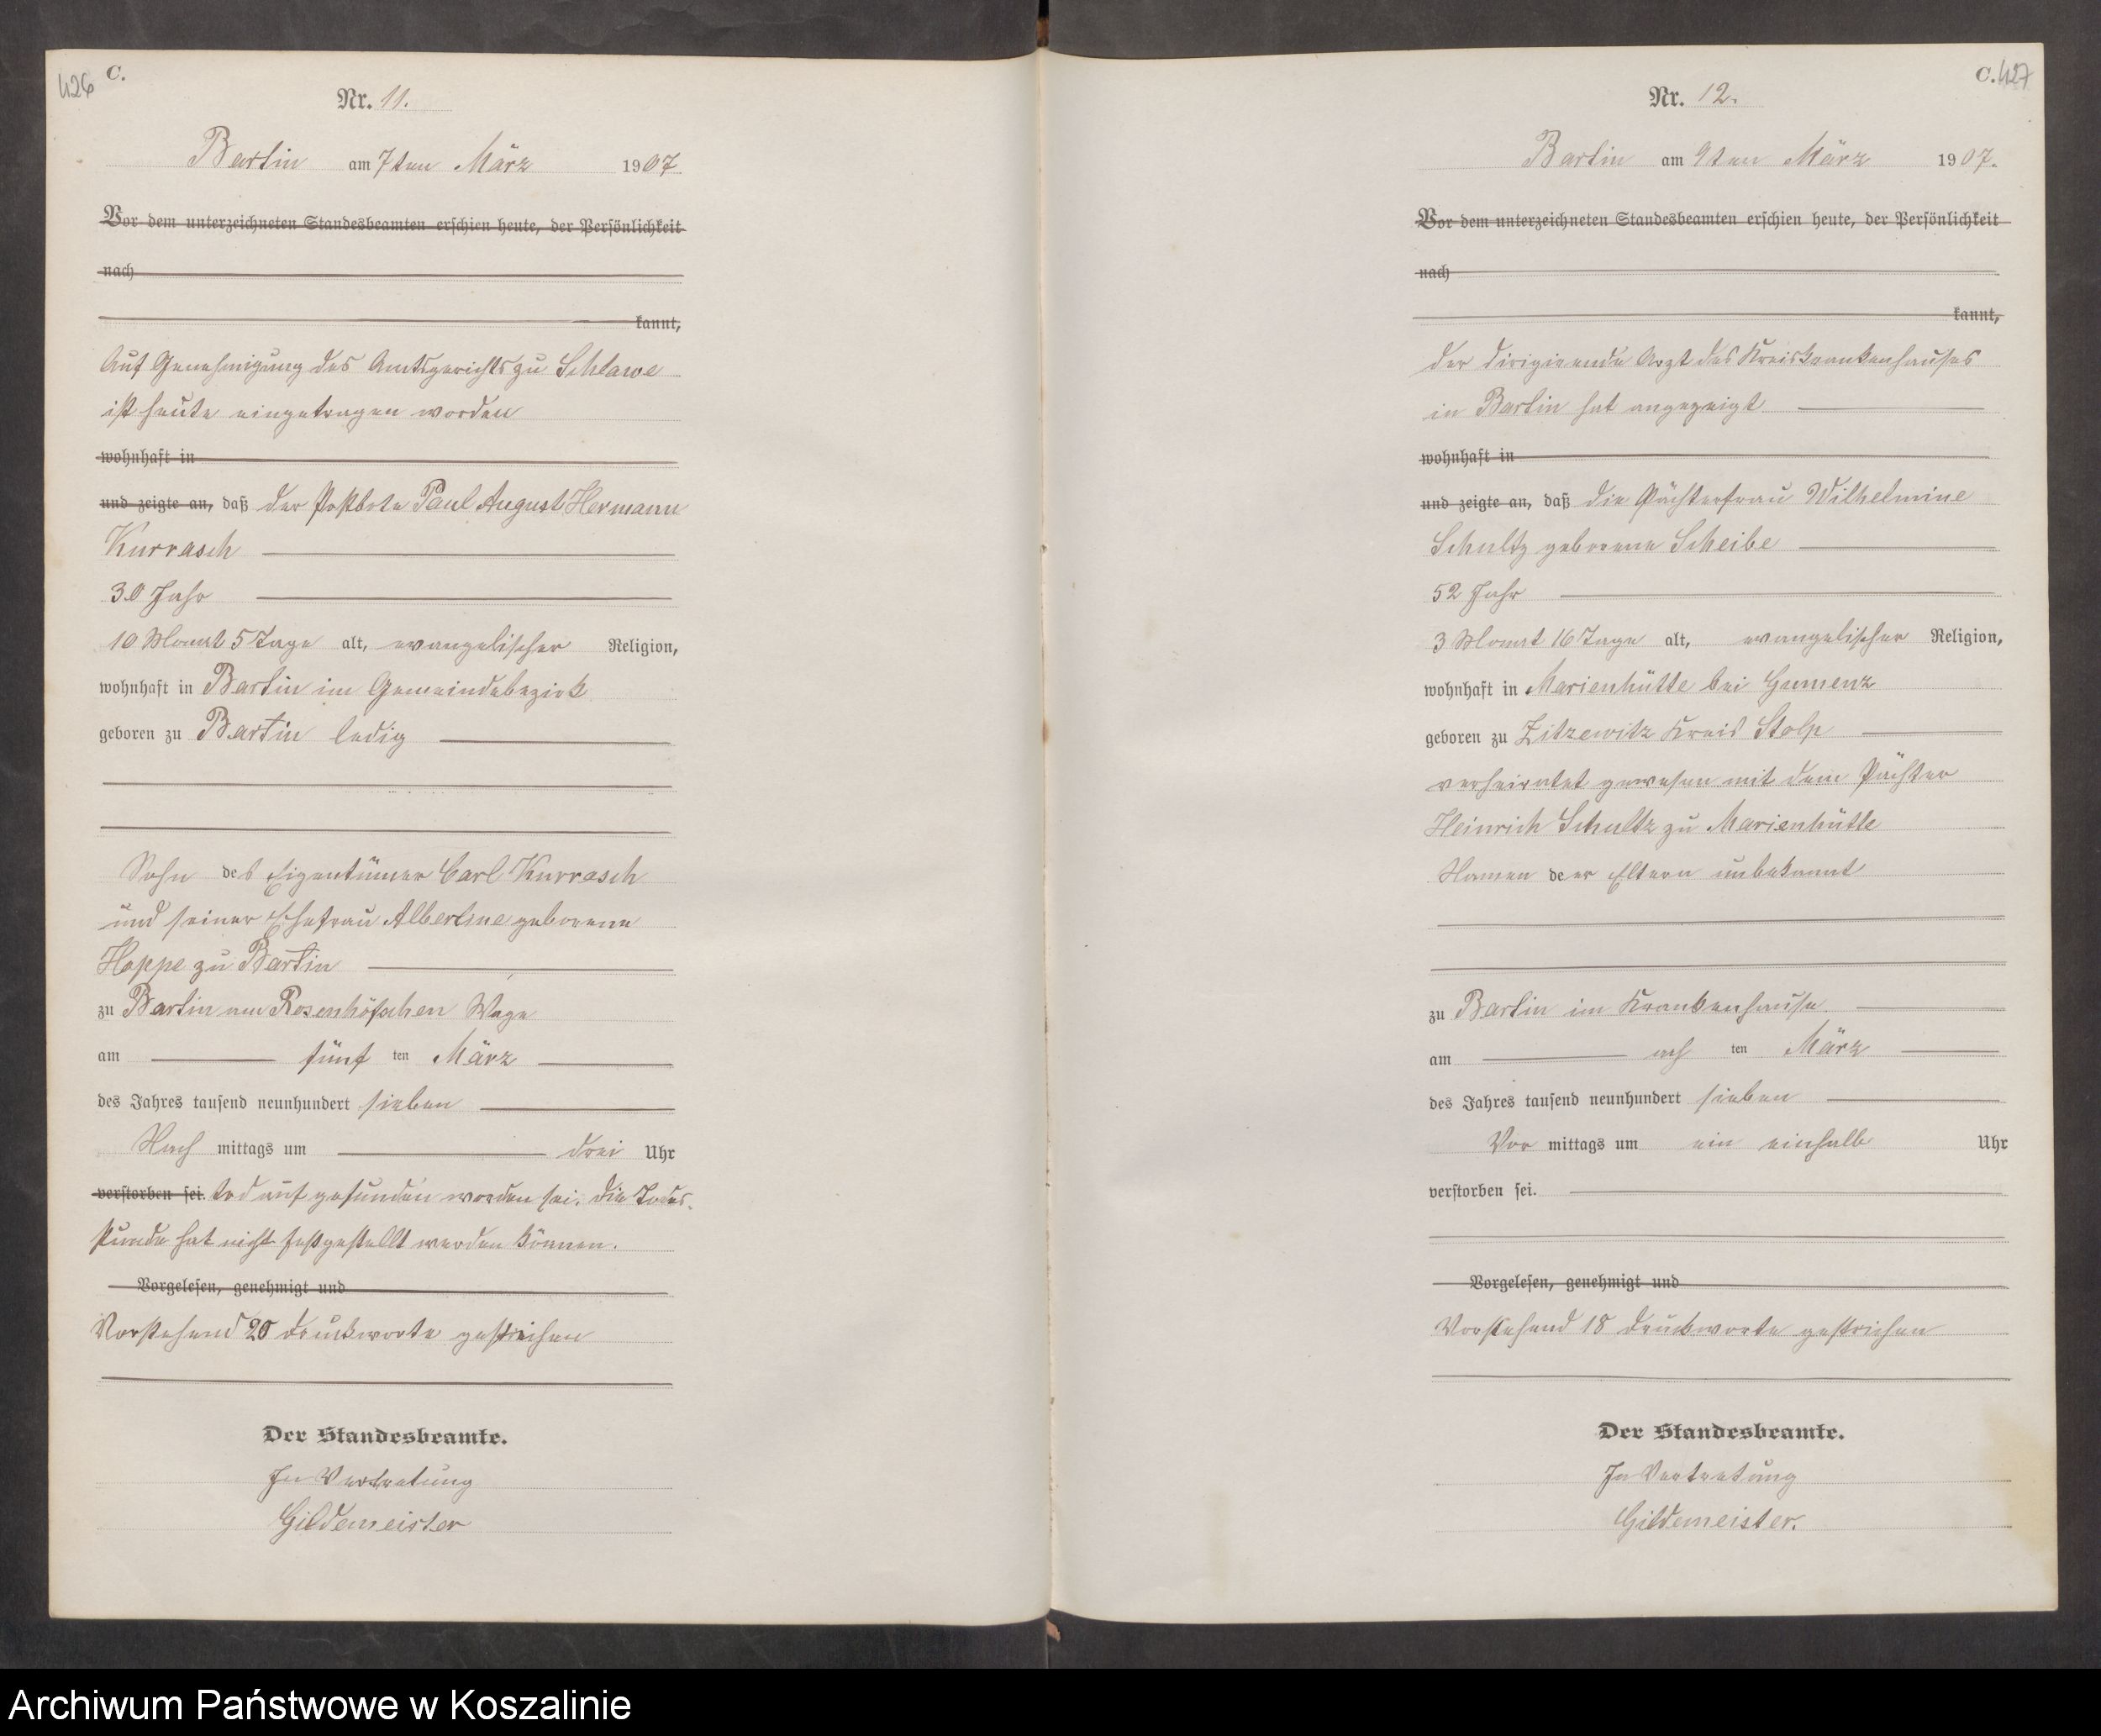 426 C.
Nr. 11.
Bartin am 7ten März 1907
Vor dem unterzeichneten Standesbeamten erschien heute, der Persönlichkeit
nach
kannt,
Auf Genehmigung des Amtsgerichts zu Schlawe
ist heute eingetragen worden
wohnhaft in
und zeigte an, daß der Postbote Paul August Hermann
Kurrasch
30 Jahr
10 Monat 5 Tage alt, evangelischer Religion,
wohnhaft in Bartin im Gemeindebezirk
geboren zu Bartin ledig
Sohn des Eigentümer Carl Kurrasch
und seiner Ehefrau Albertine geborene
Hoppe zu Bartin
zu Bartin am Rosenhöfschen Wege
am fünf ten März
des Jahres tausend neunhundert sieben
Nach mittags um drei Uhr
verstorben sei. tod auf gefunden worden sei. Die Todes-
stunde hat nicht festgestellt werden können.
Vorgelesen, genehmigt und
Vorstehend 20 Druckworte gestrichen
Der Standesbeamte.
In Vertretung
Gildemeister
C. 427
Nr. 12.
Bartin am 9ten März 1907.
Vor dem unterzeichneten Standesbeamten erschien heute, der Persönlichkeit
nach
kannt,
der dirigirende Arzt des Kreiskrankenhauses
in Bartin hat angezeigt
wohnhaft in
und zeigte an, daß die Pächterfrau Wilhelmine
Schultz geborene Scheibe
52 Jahr
3 Monat 16 Tage alt, evangelischer Religion,
wohnhaft in Marienhütte bei Gumenz
geboren zu Zitzewitz Kreis Stolp
verheiratet gewesen mit dem Pächter
Heinrich Schultz zu Marienhütte
Namen deer Eltern unbekannt
zu Bartin im Krankenhause
am ach ten März
des Jahres tausend neunhundert sieben
Vor mittags um ein einhalb Uhr
verstorben sei.
Vorgelesen, genehmigt und
Vorstehend 18 Druckworte gestrichen
Der Standesbeamte.
In Vertretung
Gildemeister.
Archiwum Państwowe w Koszalinie